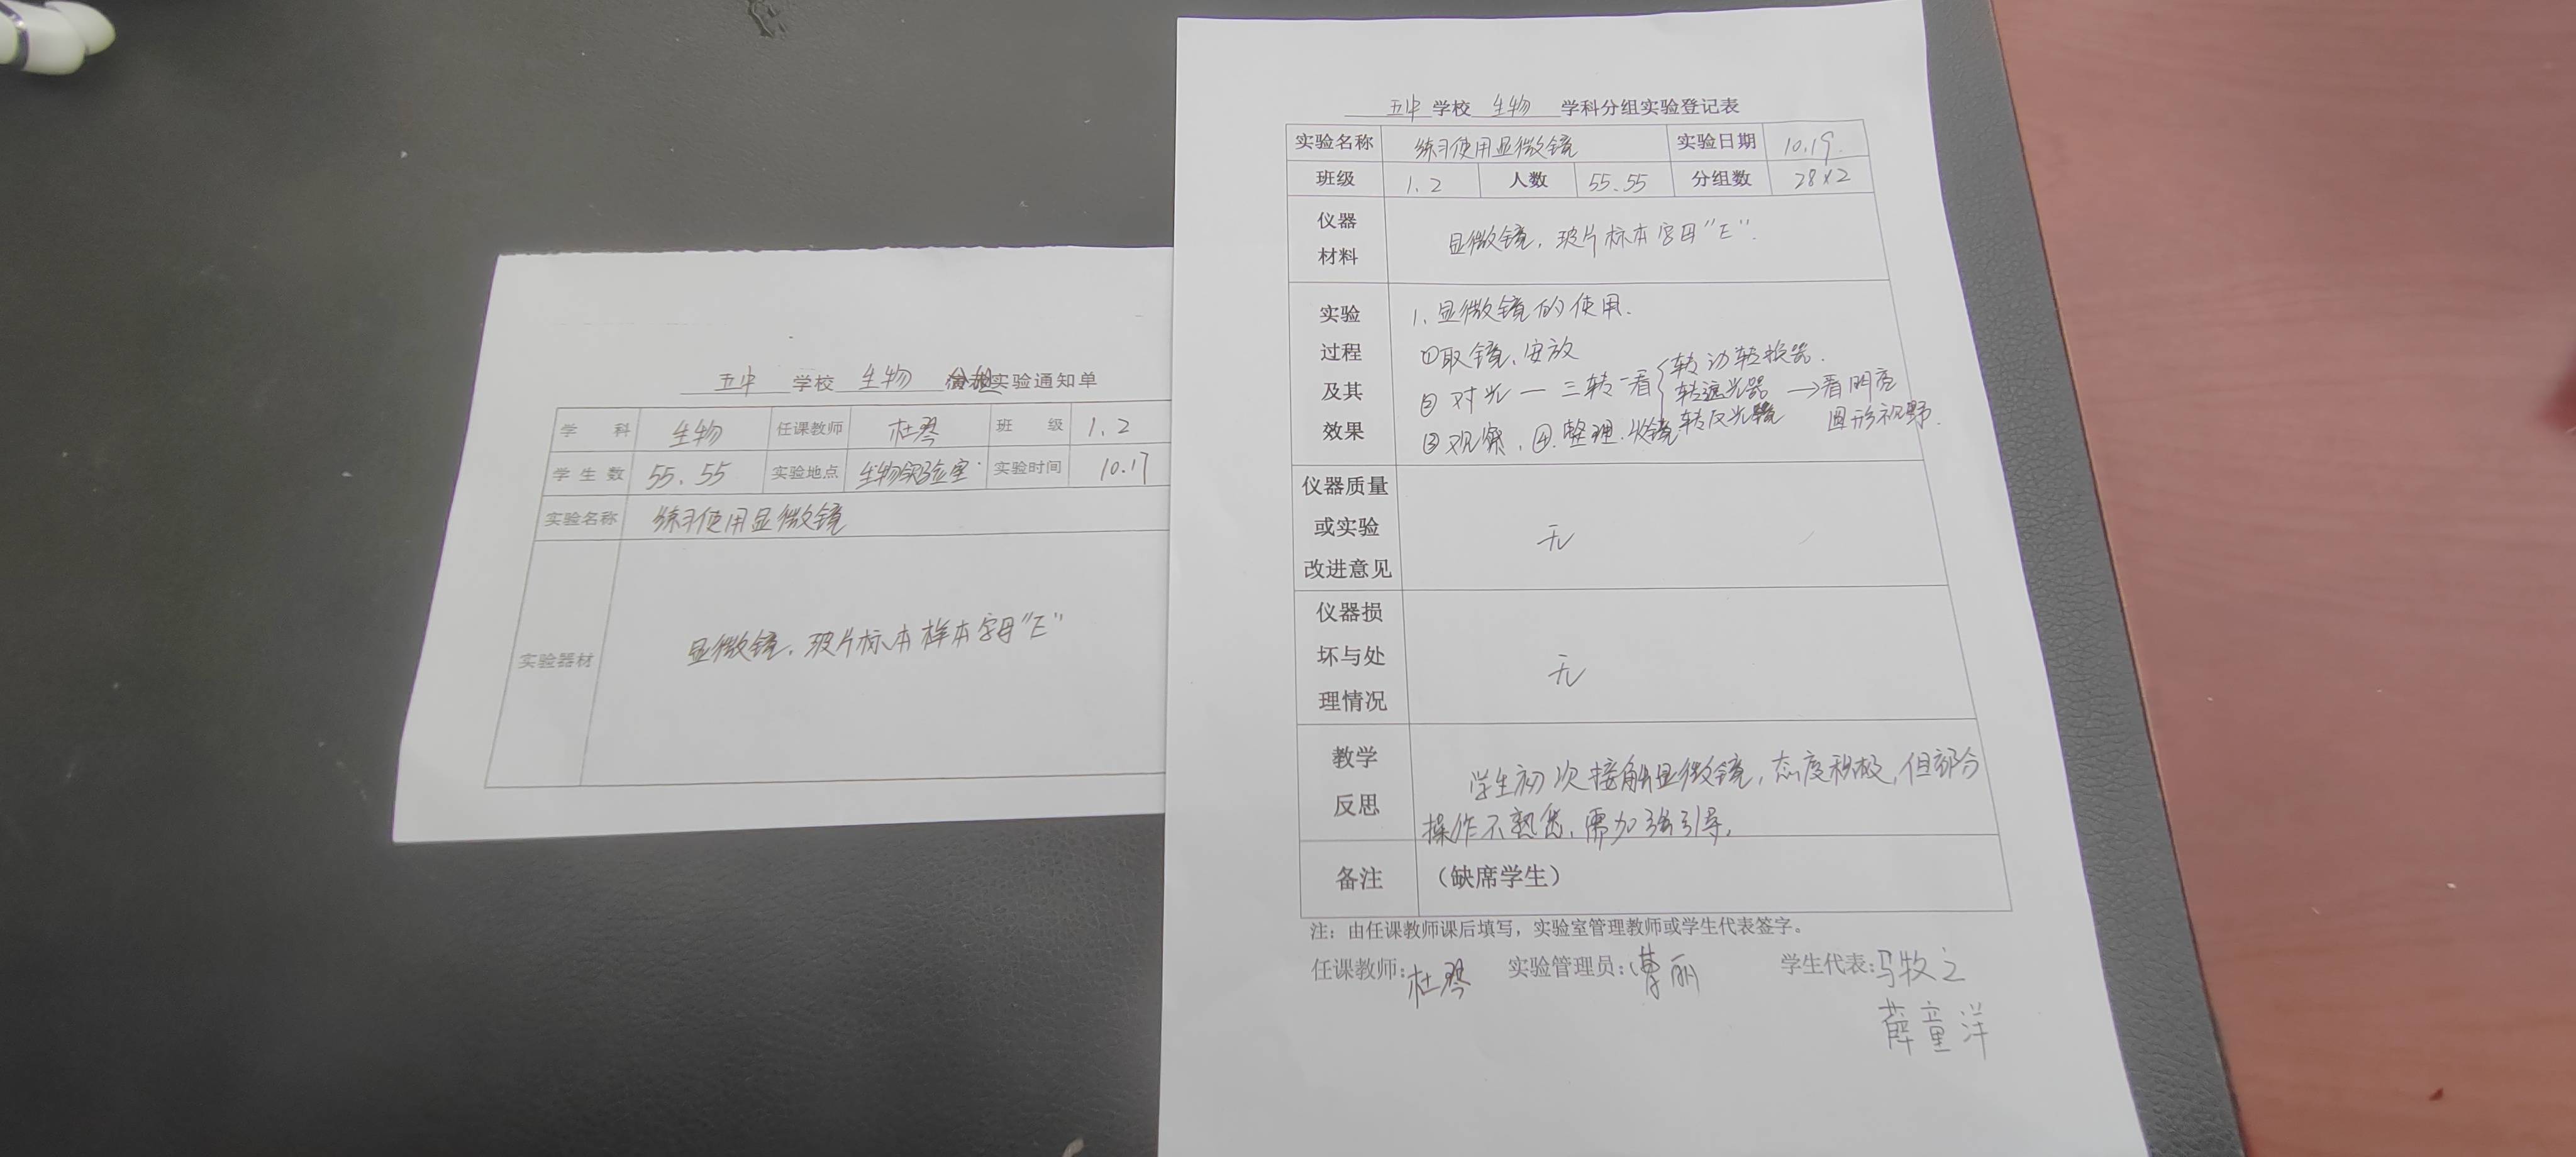 五中 学校 生物 实验通知单
学 科 生物 任课教师 杜琴 班 级 1、2
学生数 55、55 实验地点 生物实验室 实验时间 10.17
实验名称 练习使用显微镜
实验器材 显微镜、玻片标本样本字母“E”
五中 学校 生物 学科分组实验登记表
实验名称 练习使用显微镜 实验日期 10.19
班级 1、2 人数 55、55 分组数 28×2
仪器
材料
显微镜、玻片标本字母“E”.
实验
过程
及其
效果
1、显微镜的使用.
①取镜、安放
②对光—三转一看
转动转换器.
转遮光器
转反光镜
→看明亮
圆形视野.
③观察、④.整理.收镜
仪器质量
或实验
改进意见
无
仪器损
坏与处
理情况
无
教学
反思
学生初次接触显微镜,态度积极,但部分
操作不熟悉,需加强引导,
备注 (缺席学生)
注：由任课教师课后填写，实验室管理教师或学生代表签字。
任课教师:杜琴 实验管理员:曹丽 学生代表:马牧之
薛童洋